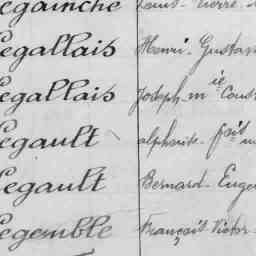 egainche Louis-Pierre
Legallais Henri-Gustave
Legallais Joseph-mie Const
Legault alphonse-frois
Legault Bernard-Euge
Legemble François-Victor-